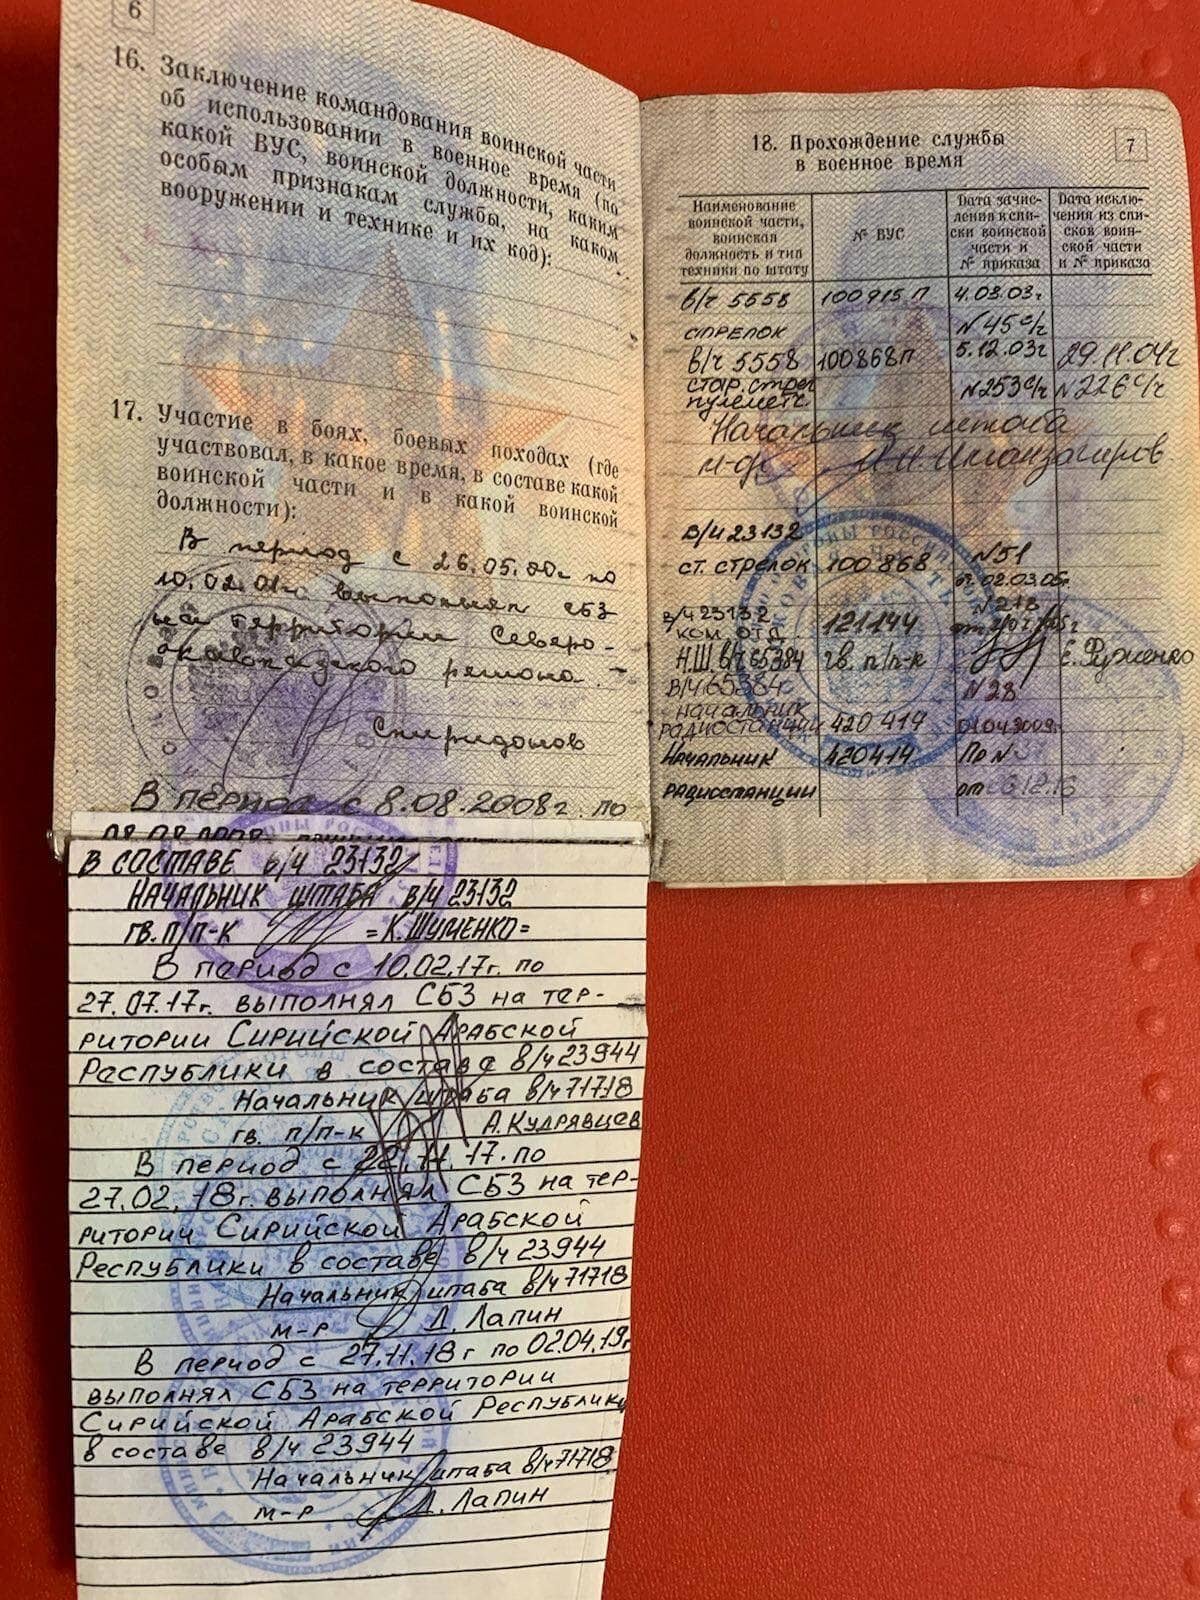 6
16. Заключение командования воинской части
об использовании в военное время (по
какой ВУС, воинской должности, каким
особым признакам службы, на каком
вооружении и технике и их код):
17. Участие в боях, боевых походах (где
участвовал, в какое время, в составе какой
воинской части и в какой воинской
должности):
В период с 26.05.00г по
10.02.01г выполнял СБЗ
на территории Северо-
кавказского региона.
Спиридонов
В период с 8.08.2008г. по
В СОСТАВЕ в/ч 23132
НАЧАЛЬНИК ШТАБА в/ч 23132
гв. п/п-к =К.ШУМЕНКО=
В период с 10.02.17г. по
27.07.17г. выполнял СБЗ на тер-
ритории Сирийской Арабской
Республики в составе в/ч 23944
Начальник штаба в/ч 71718
гв. п/п-к А.Кудрявцев
В период с 22.11.17. по
27.02.18г. выполнял СБЗ на тер-
ритории Сирийской Арабской
Республики в составе в/ч 23944
Начальник штаба в/ч 71718
м-р Д. Лапин
В период с 27.11.18г по 02.04.19г
выполнял СБЗ на территории
Сирийской Арабской Республики
в составе в/ч 23944
Начальник штаба в/ч 71718
м-р Д. Лапин
7
18. Прохождение службы
в военное время
Наименование воинской части, воинская должность и тип техники по штату
№ ВУС
Дата зачисления в списки воинской части и № приказа
Дата исключения из списков воинской части и № приказа
в/ч 5558 100915 П 4.03.03г
стрелок №45 с/ч
в/ч 5558 100868П 5.12.03г 29.11.04г
стар. стрел №253 с/ч №226 с/ч
пулеметч.
Начальник штаба
м-р
в/ч 23132 №51
ст. стрелок 100868 от 02.03.05г.
в/ч 23132 №218
ком. отд. 121144
Н.Ш. в/ч 65384 гв. п/п-к С. Руженко
в/ч 65384 №28
начальник
радиостанции 420414
Начальник 420414 Пр №
радиостанции от